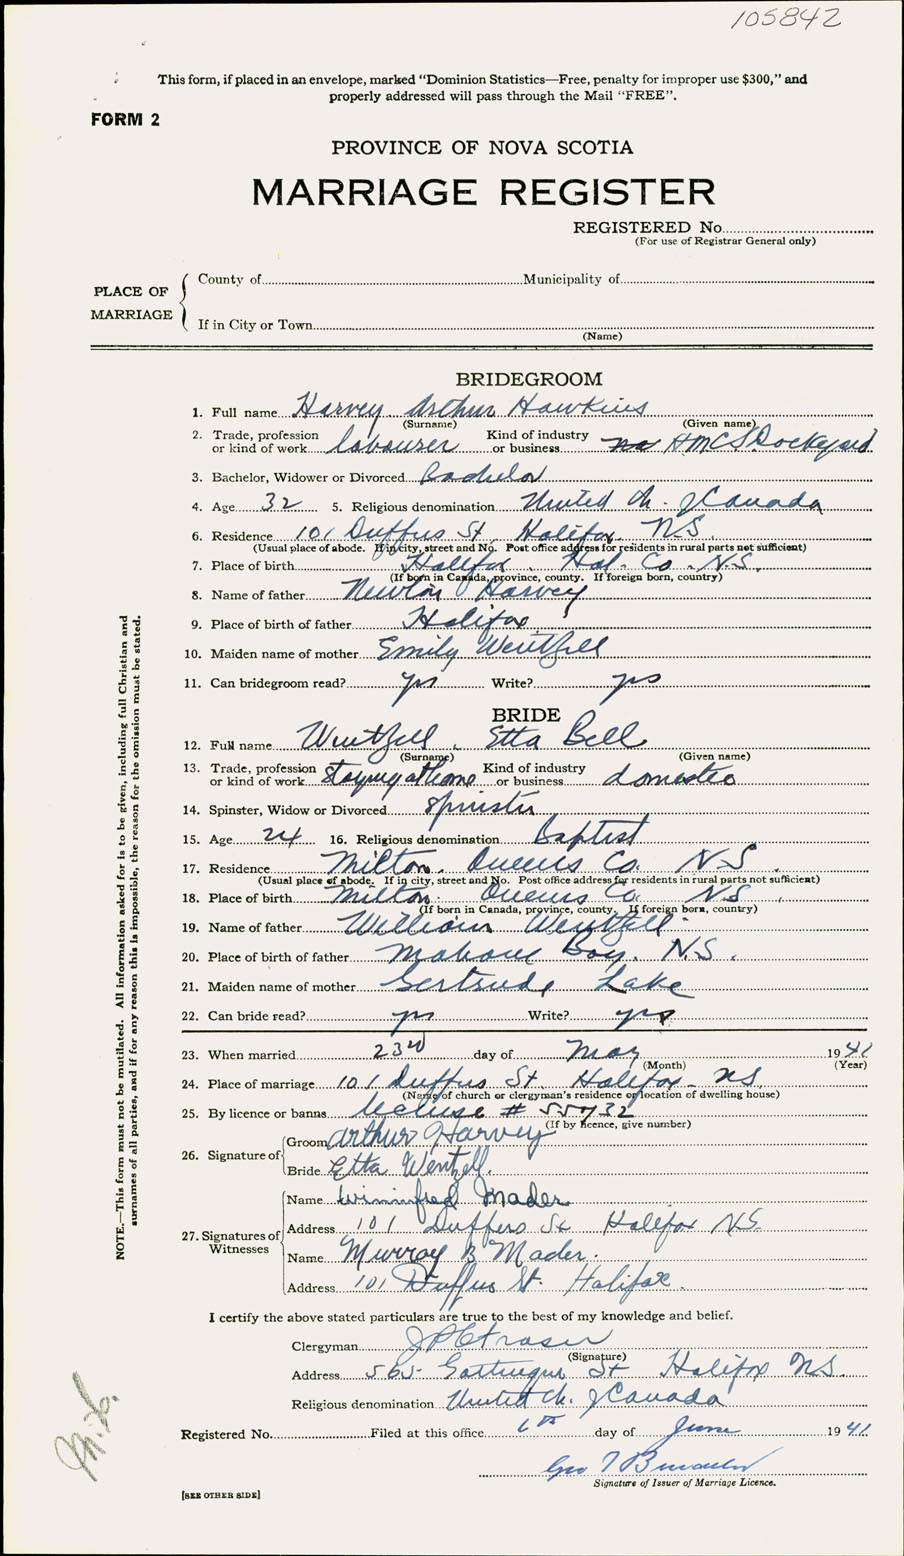 105842
This form, if placed in an envelope, marked "Dominion Statistics—Free, penalty for improper use $300," and
properly addressed will pass through the Mail "FREE".
FORM 2
PROVINCE OF NOVA SCOTIA
MARRIAGE REGISTER
REGISTERED No.
(For use of Registrar General only)
PLACE OF MARRIAGE
County of Municipality of
If in City or Town
(Name)
BRIDEGROOM
1. Full name Harvey Arthur Hawkins
(Surname) (Given name)
2. Trade, profession or kind of work labourer Kind of industry or business H.M.C.S. Dockyard
3. Bachelor, Widower or Divorced Bachelor
4. Age 32 5. Religious denomination United Ch. of Canada
6. Residence 101 Duffus St, Halifax N.S.
(Usual place of abode. If in city, street and No. Post office address for residents in rural parts not sufficient)
7. Place of birth Halifax. Hal. Co. N.S.
(If born in Canada, province, county. If foreign born, country)
8. Name of father Newton Harvey
9. Place of birth of father Halifax
10. Maiden name of mother Emily Wentzell
11. Can bridegroom read? yes Write? yes
BRIDE
12. Full name Wentzell, Etta Bell
(Surname) (Given name)
13. Trade, profession or kind of work staying at home Kind of industry or business domestic
14. Spinster, Widow or Divorced Spinster
15. Age 24 16. Religious denomination Baptist
17. Residence Milton. Queens Co. N.S.
(Usual place of abode. If in city, street and No. Post office address for residents in rural parts not sufficient)
18. Place of birth Milton. Queens Co. N.S.
(If born in Canada, province, county. If foreign born, country)
19. Name of father William Wentzell
20. Place of birth of father Mahone Bay. N.S.
21. Maiden name of mother Gertrude Lake
22. Can bride read? yes Write? yes
23. When married 23rd day of May 1941
(Month) (Year)
24. Place of marriage 101 Duffus St. Halifax. NS.
(Name of church or clergyman's residence or location of dwelling house)
25. By licence or banns License # 55732
(If by licence, give number)
26. Signature of
Groom Arthur Harvey
Bride Etta Wentzell.
27. Signatures of Witnesses
Name Winnifred Mader
Address 101 Duffus St Halifax N.S.
Name Murray B Mader.
Address 101 Duffus St. Halifax.
I certify the above stated particulars are true to the best of my knowledge and belief.
Clergyman Fraser
(Signature)
Address 565 Gottingen St Halifax N.S.
Religious denomination United Ch. of Canada
Registered No. Filed at this office 6th day of June 1941
Geo
Signature of Issuer of Marriage Licence.
[SEE OTHER SIDE]
NOTE.—This form must not be mutilated. All information asked for is to be given, including full Christian and
surnames of all parties, and if for any reason this is impossible, the reason for the omission must be stated.